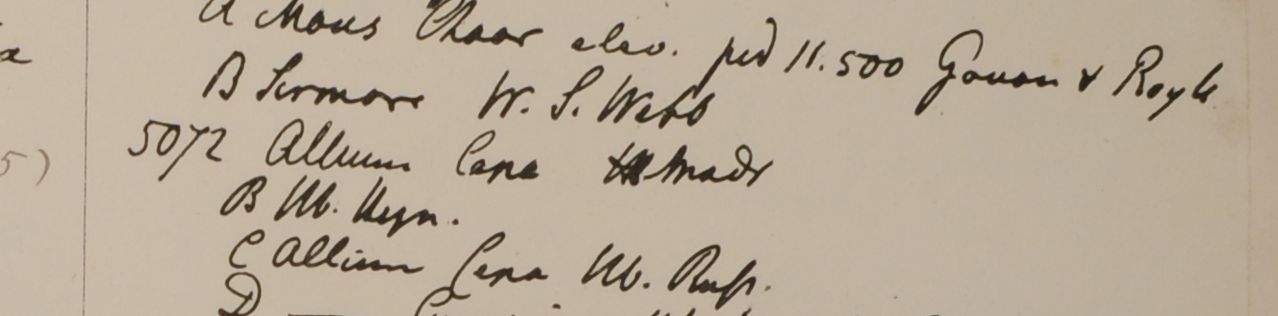 A Mons Choor elev. ped 11.500 Govan & Royle
B Sirmore W. S. Webb
5072 Allium Cepa Madr
B Hb. Heyn.
C Allium Cepa Hb. Russ.
D